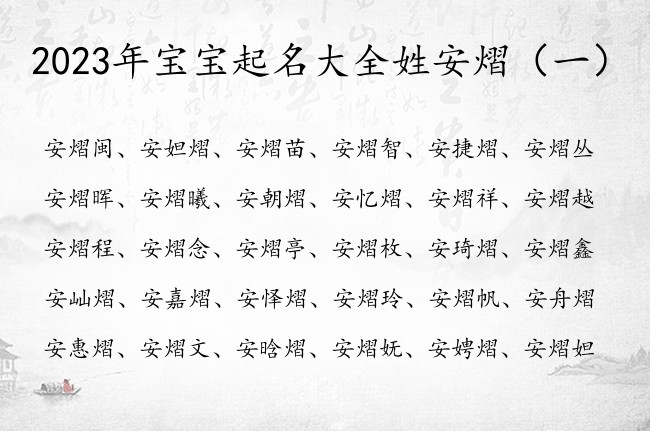 2023年宝宝起名大全姓安熠（一）
安熠闽、安妲熠、安熠苗、安熠智、安捷熠、安熠丛
安熠晖、安熠曦、安朝熠、安忆熠、安熠祥、安熠越
安熠程、安熠念、安熠亭、安熠枚、安琦熠、安熠鑫
安屾熠、安嘉熠、安怿熠、安熠玲、安熠帆、安舟熠
安惠熠、安熠文、安晗熠、安熠妩、安娉熠、安熠妲